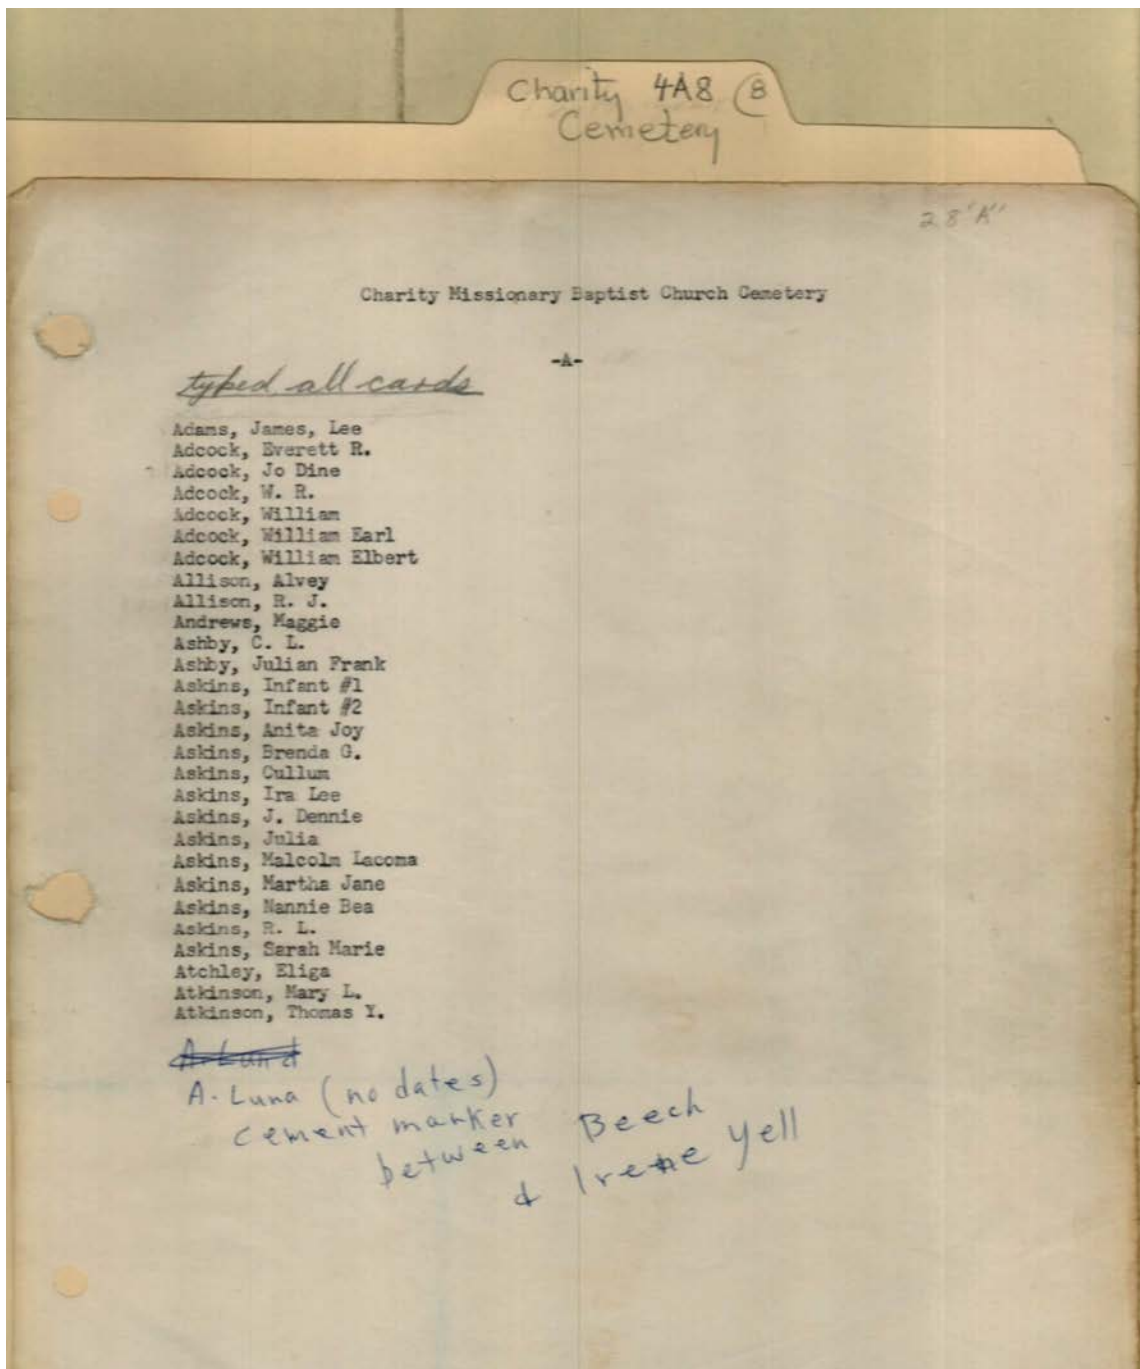 Charity 4A8 (B
Cemetery
28 "A"
Charity Missionary Baptist Church Cemetery
-A-
typed all cards
Adams, James, Lee
Adcock, Everett R.
Adcock, Jo Dine
Adcock, W. R.
Adcock, William
Adcock, William Earl
Adcock, William Elbert
Allison, Alvey
Allison, R. J.
Andrews, Maggie
Ashby, C. L.
Ashby, Julian Frank
Askins, Infant #1
Askins, Infant #2
Askins, Anita Joy
Askins, Brenda G.
Askins, Cullum
Askins, Ira Lee
Askins, J. Dennie
Askins, Julia
Askins, Malcolm Lacoma
Askins, Martha Jane
Askins, Nannie Bea
Askins, R. L.
Askins, Sarah Marie
Atchley, Eliga
Atkinson, Mary L.
Atkinson, Thomas Y.
A. Luna (no dates)
cement marker
between Beech
& Irene Yell